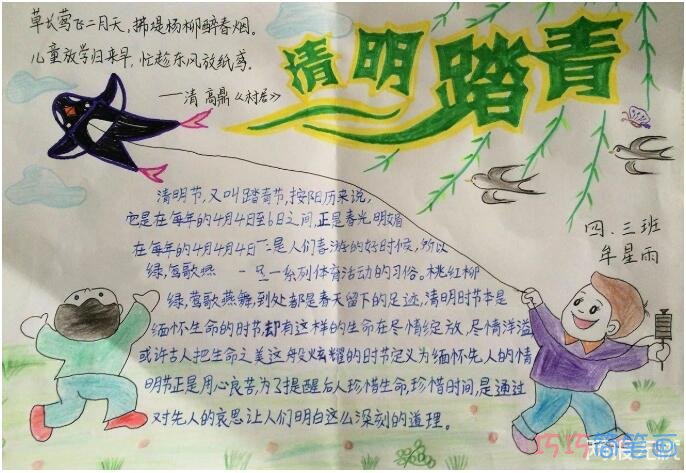 草长莺飞二月天，拂堤杨柳醉春烟。
儿童放学归来早，忙趁东风放纸鸢。
——清 高鼎《村居》
清明踏青
四.三班
牟星雨
清明节，又叫踏青节，按阳历来说，
它是在每年的4月4日至6日之间，正是春光明媚
在每年的4月4月4日 是人们春游的好时候，所以
绿，莺歌燕 一系列体育活动的习俗。桃红柳
绿，莺歌燕舞，到处都是春天留下的足迹，清明时节本是
缅怀生命的时节，却有这样的生命在尽情绽放，尽情洋溢
或许古人把生命之美这般炫耀的时节定义为缅怀先人的情
明节正是用心良苦，为了提醒后人珍惜生命，珍惜时间，是通过
对先人的哀思让人们明白这么深刻的道理。
巧巧简笔画